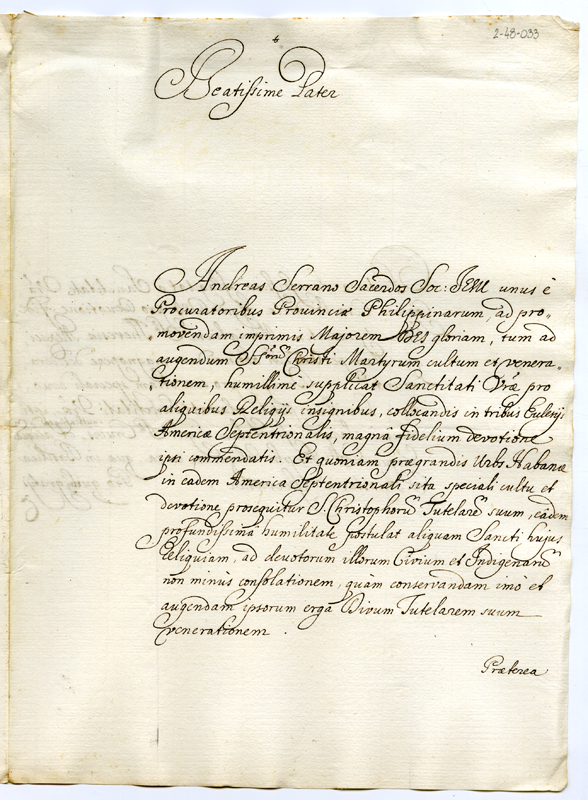 2-48-033
Beatissime Pater
Andreas Serrano Sacerdos Soc: JESU unus è
Procuratoribus Provinciæ Philippinarum, ad pro=
movendam imprimis Majorem DEI gloriam, tum ad
augendum SS.orũ Christi Martyrum cultum et venera=
tionem, humillime supplicat Sanctitati Vræ pro
aliquibus Reliquijs insignibus, collocandis in tribus Ecclesijs
Americæ Septentrionalis, magnâ fidelium devotione
ipsi commendatis. Et quoniam prægrandis Urbs Habanæ
in eadem America Septentrionali sita speciali cultu et
devotione prosequitur S. Christophorũ Tutelarẽ suum, eadem
profundissimâ humilitate postulat aliquam Sancti hujus
Reliquiam, ad devotorum illorum Civium et Indigenarũ
non minus consolationem, quàm conservandam imò et
augendam ipsorum erga Divum Tutelarem suum
venerationem.
Præterea